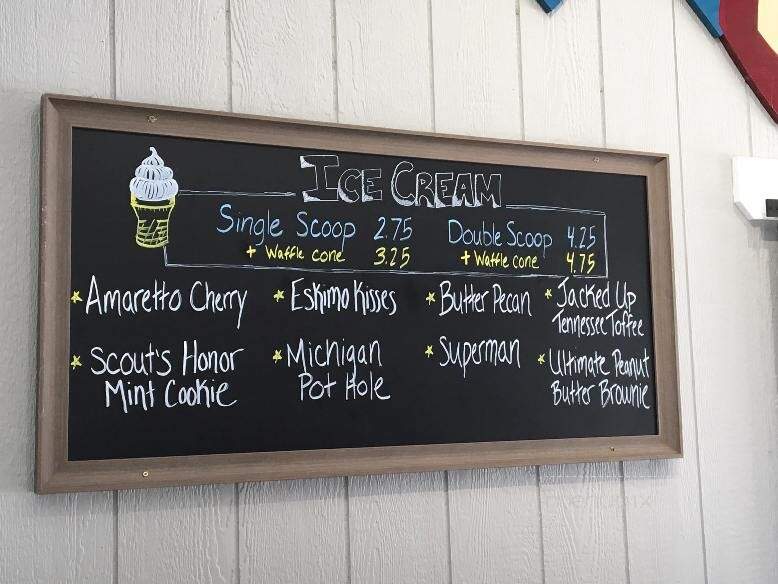 ICE CREAM
Single Scoop 2.75 Double Scoop 4.25
+ Waffle cone 3.25 + Waffle cone 4.75
* Amaretto Cherry * Eskimo Kisses * Butter Pecan * Jacked Up
Tennessee Toffee
* Scout's Honor * Michigan * Superman * Ultimate Peanut
Mint Cookie Pot Hole Butter Brownie